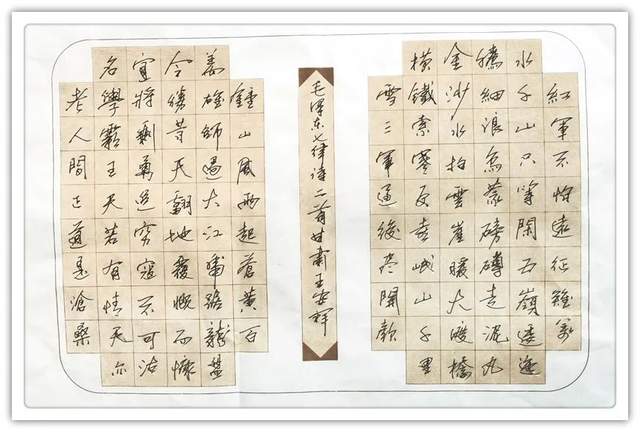 紅軍不怕遠征難萬
水千山只等閑五嶺逶迤
騰細浪烏蒙磅礴走泥丸
金沙水拍雲崖暖大渡橋
橫鐵索寒更喜岷山千里
雪三軍過後盡開顏
毛澤東七律詩二首甘肅王安祥
鍾山風雨起蒼黃百
萬雄師過大江虎踞龍盤
今勝昔天翻地覆慨而慷
宜將剩勇追窮寇不可沽
名學霸王天若有情天亦
老人間正道是滄桑